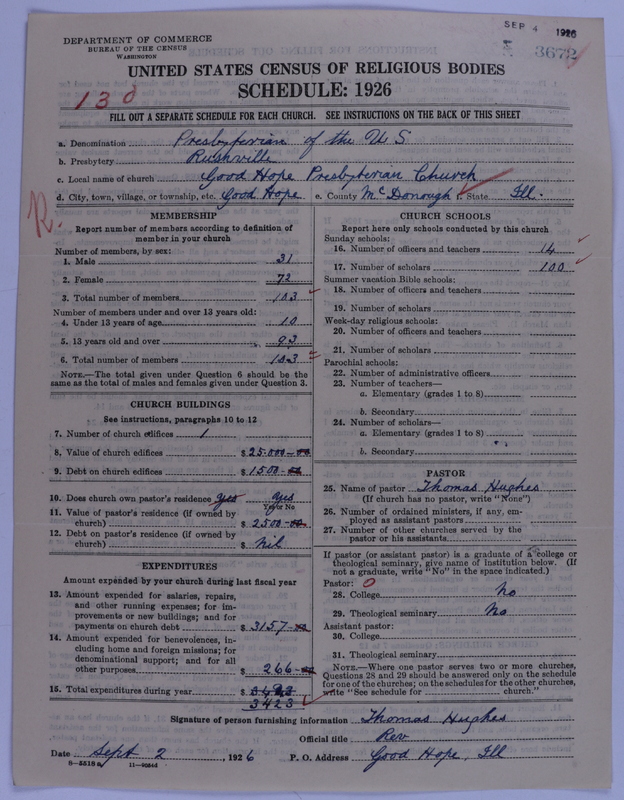 SEP 4 1926
DEPARTMENT OF COMMERCE
BUREAU OF THE CENSUS
WASHINGTON
3672
UNITED STATES CENSUS OF RELIGIOUS BODIES
SCHEDULE: 1926
130
FILL OUT A SEPARATE SCHEDULE FOR EACH CHURCH. SEE INSTRUCTIONS ON THE BACK OF THIS SHEET
a. Denomination Presbyterian of the U S
b. Presbytery Rushville
c. Local name of church Good Hope Presbyterian Church
d. City, town, village, or township, etc. Good Hope e. County McDonough f. State Ill.
R.
MEMBERSHIP
Report number of members according to definition of
member in your church
Number of members, by sex:
1. Male 31
2. Female 72
3. Total number of members 103
Number of members under and over 13 years old:
4. Under 13 years of age 10
5. 13 years old and over 93
6. Total number of members 103
NOTE.—The total given under Question 6 should be the
same as the total of males and females given under Question 3.
CHURCH BUILDINGS
See instructions, paragraphs 10 to 12
7. Number of church edifices 1
8. Value of church edifices $25.000-00
9. Debt on church edifices $1500-00
10. Does church own pastor's residence yes yes
Yes or No
11. Value of pastor's residence (if owned by
church) $2500-00
12. Debt on pastor's residence (if owned by
church) $ Nil
EXPENDITURES
Amount expended by your church during last fiscal year
13. Amount expended for salaries, repairs,
and other running expenses; for im-
provements or new buildings; and for
payments on church debt $3157-00
14. Amount expended for benevolences, in-
cluding home and foreign missions; for
denominational support; and for all
other purposes $266-00
15. Total expenditures during year $3423
3423
CHURCH SCHOOLS
Report here only schools conducted by this church
Sunday schools:
16. Number of officers and teachers 14
17. Number of scholars 100
Summer vacation Bible schools:
18. Number of officers and teachers
19. Number of scholars
Week-day religious schools:
20. Number of officers and teachers
21. Number of scholars
Parochial schools:
22. Number of administrative officers
23. Number of teachers—
a. Elementary (grades 1 to 8)
b. Secondary
24. Number of scholars—
a. Elementary (grades 1 to 8)
b. Secondary
PASTOR
25. Name of pastor Thomas Hughes
(If church has no pastor, write "None")
26. Number of ordained ministers, if any, em-
ployed as assistant pastors
27. Number of other churches served by the
pastor or his assistants
If pastor (or assistant pastor) is a graduate of a college or
theological seminary, give name of institution below. (If
not a graduate, write "No" in the space indicated.)
Pastor: 0
28. College No
29. Theological seminary No
Assistant pastor:
30. College
31. Theological seminary
NOTE.—Where one pastor serves two or more churches,
Questions 28 and 29 should be answered only on the schedule
for one of the churches; on the schedules for the other churches,
write "See schedule for church."
Signature of person furnishing information Thomas Hughes
Official title Rev
Date Sept 2, 1926 P. O. Address Good Hope, Ill
8-5518a 11-9054d